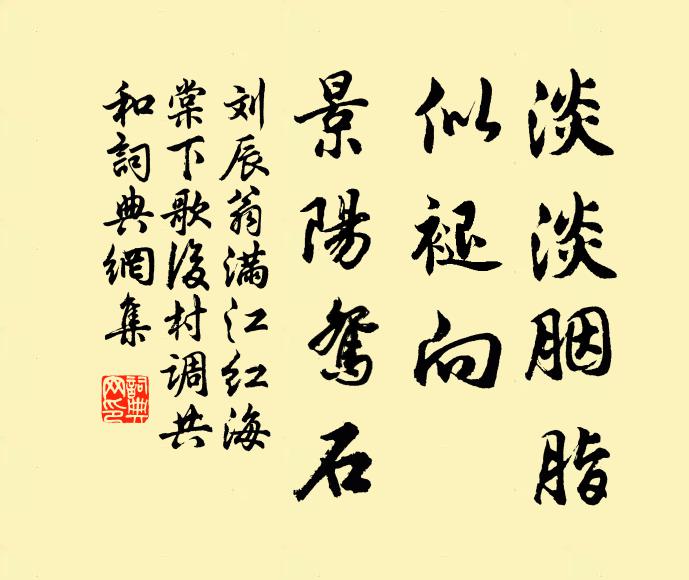 淡淡胭脂
似褪向
景陽鴛石
刘辰翁满江红海
棠下歌後村调共
和詞典網集
詞典
网印